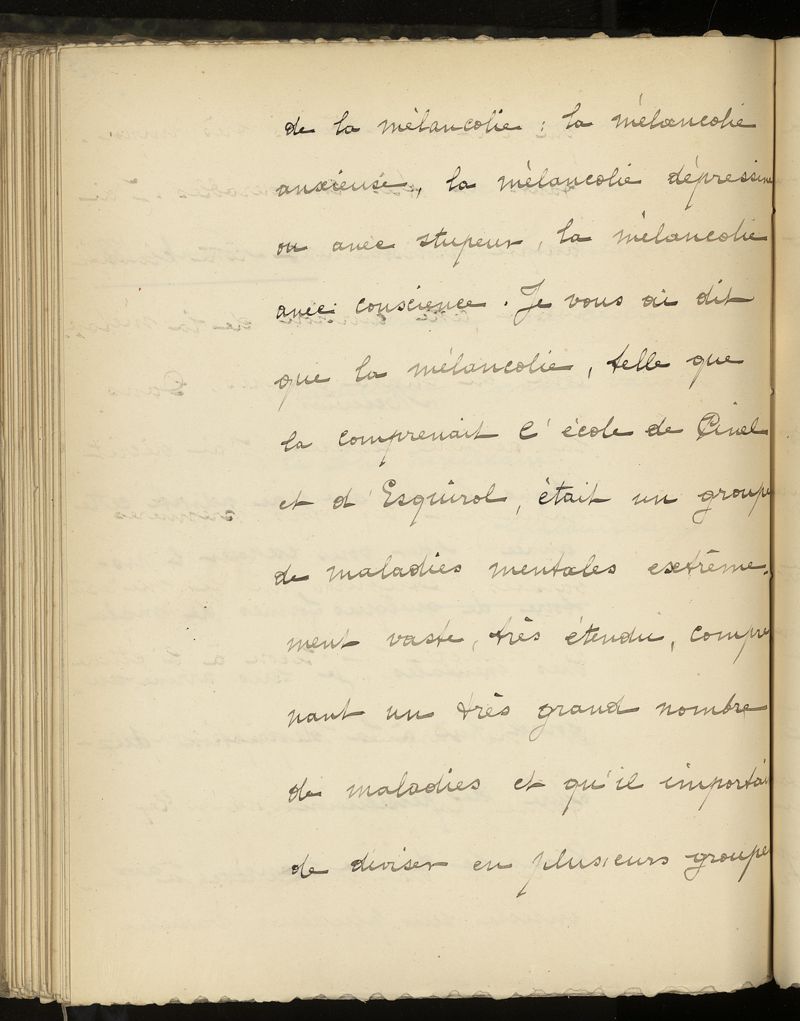 de la mélancolie : la mélancolie
anxieuse, la mélancolie dépressive
ou avec stupeur, la mélancolie
avec conscience. Je vous ai dit
que la mélancolie, telle que
la comprenait l'école de Pinel
et d'Esquirol, était un groupe
de maladies mentales extrême-
ment vaste, très étendu, compre
nant un très grand nombre
de maladies et qu'il importai
de diviser en plusieurs groupe